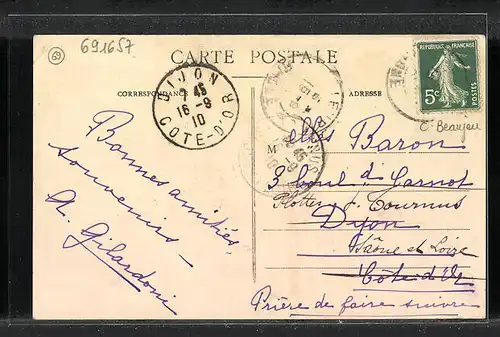 691657
69
CARTE POSTALE
CORRESPONDANCE
ADRESSE
DIJON
7 45
16-9
10
COTE-D'OR
REPUBLIQUE FRANÇAISE
5c
POSTES
Beaujeu
Melles Baron
3 boul. d Carnot
Tournus
Dijon
Saône et Loire
Côte d'Or
Prière de faire suivre
Bonnes amitiés,
souvenirs
A. Gilardoni